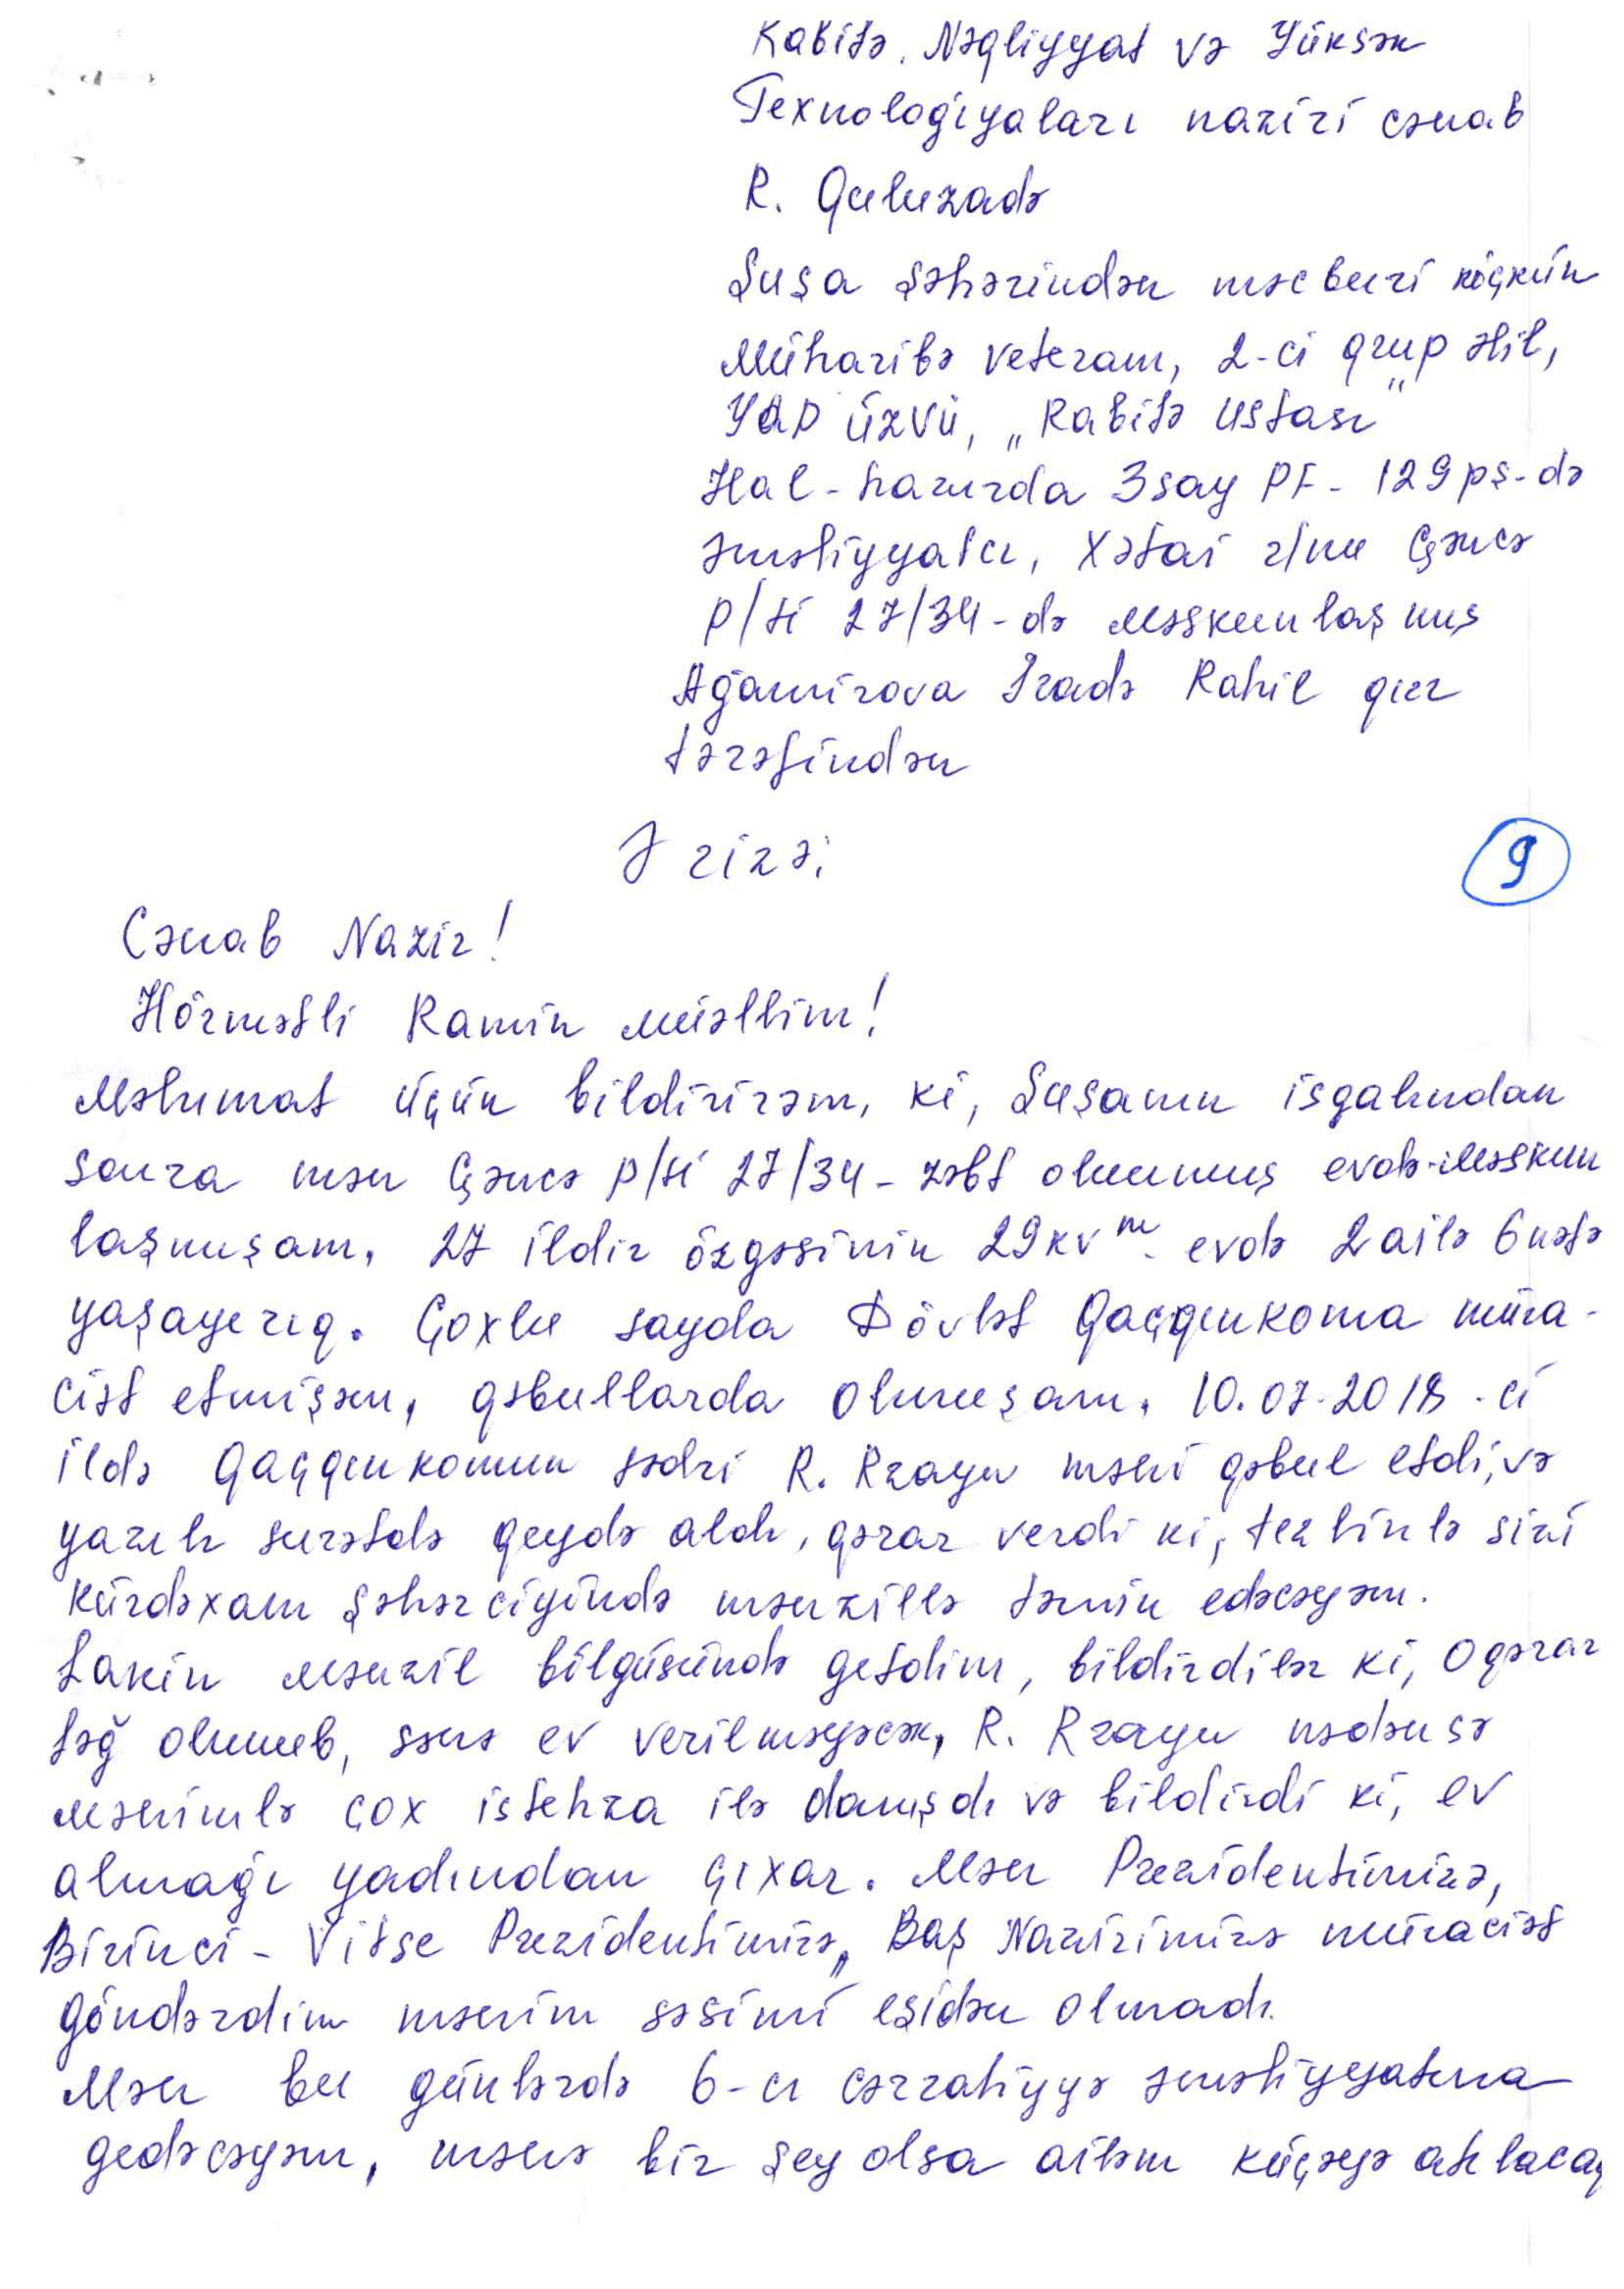 Rabitə, Nəqliyyat və Yüksək
Texnologiyaları naziri cənab
R. Quluzadə
Şuşa şəhərindən məcburi köçkün
Müharibə veteranı, 2-ci qrup əlil,
YAP üzvü, „Rabitə ustası"
Hal-hazırda 3 say PF-129 pş-də
əməliyyatçı, Xətai r/nu Gəncə
p/ti 27/34-də məskunlaşmış
Ağamirova İradə Rahil qızı
tərəfindən
Ərizə;
9
Cənab Nazir!
Hörmətli Ramin müəllim!
Məlumat üçün bildirirəm, ki, Şuşanın işğalından
sonra mən Gəncə p/ti 27/34-zəbt olunmuş evdə məskun
laşmışam. 27 ildir özgəsinin 29 kv m. evdə 2 ailə 6 nəfə
yaşayırıq. Çoxlu sayda Dövlət Qaçqınkoma müra-
ciət etmişəm, qəbullarda olmuşam. 10.07.2018-ci
ildə Qaçqınkomun sədri R. Rzayev məni qəbul etdi, və
yazılı surətdə qeydə aldı, qərar verdi ki, tezliklə sizi
Kürdəxanı şəhərciyində mənzillə təmin edəcəyəm.
Lakin mənzil bölgüsündə getdim, bildirdilər ki, o qərar
ləğ olunub, sənə ev verilməyəcək, R. Rzayev nədənsə
mənimlə çox istehza ilə danışdı və bildirdi ki, ev
almağı yadından çıxar. Mən Prezidentimizə,
Birinci-Vitse Prezidentimizə, Baş Nazirimizə müraciət
göndərdim mənim səsimi eşidən olmadı.
Mən bu günlərdə 6-cı cərrahiyyə əməliyyatına
gedəcəyəm, mənə bir şey olsa ailəm küçəyə atılacaq